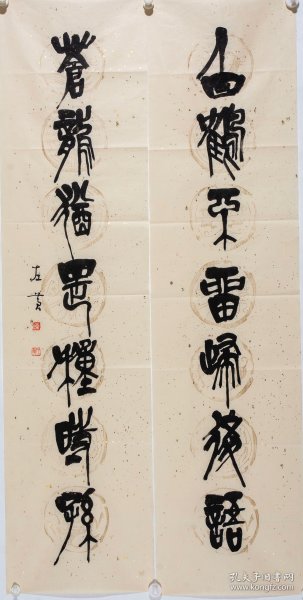 白鶴不留歸後語
蒼龍猶是種時孫
孔夫子旧书网